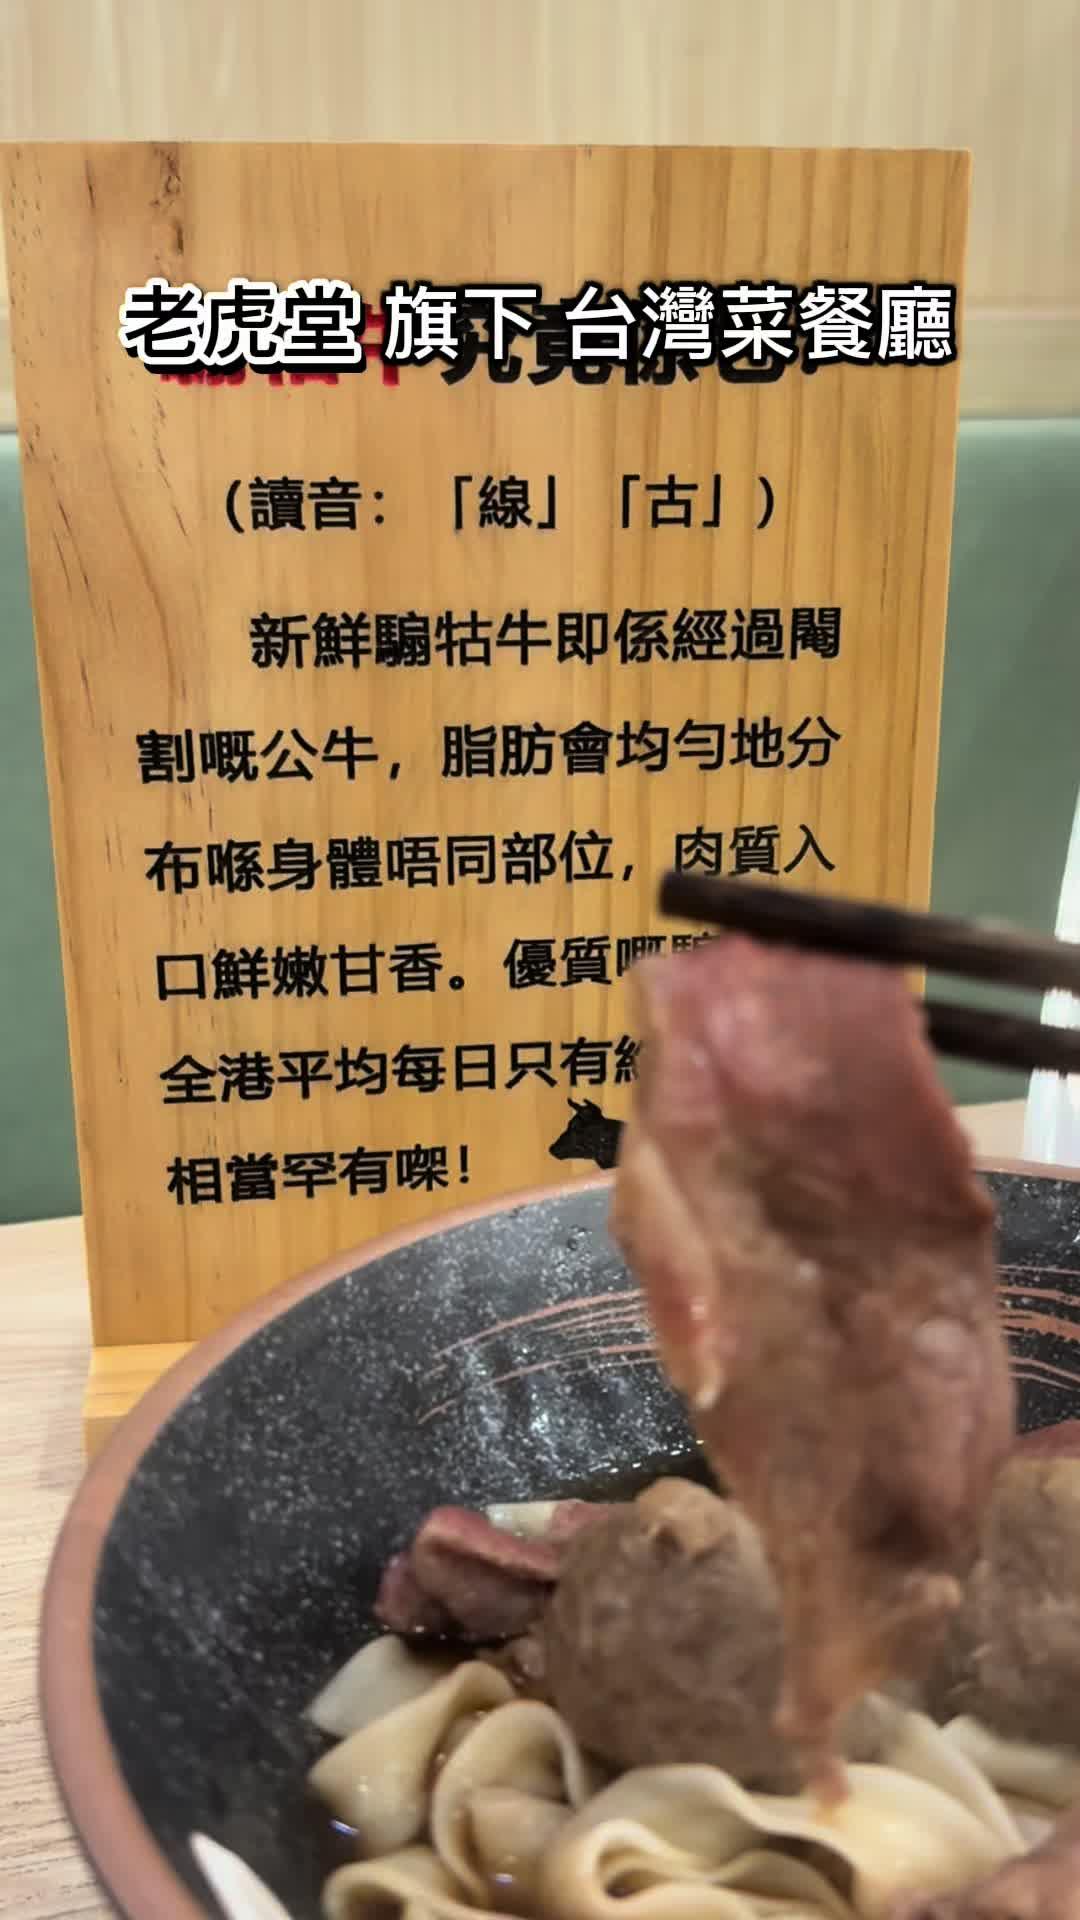 老虎堂 旗下 台灣菜餐廳
（讀音：「線」「古」）
新鮮騸牯牛即係經過閹
割嘅公牛，脂肪會均勻地分
布喺身體唔同部位，肉質入
口鮮嫩甘香。優質嘅騸
全港平均每日只有約
相當罕有㗎！